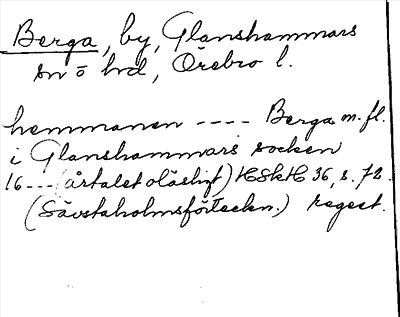 Berga, by, Glanshammars
sn o hd, Örebro l.
hemmanen ---- Berga m. fl.
i Glanshammars socken
16--- (årtalet oläsligt) HSkH 36, s. 72.
(Sävstaholmsförteckn.) regest.